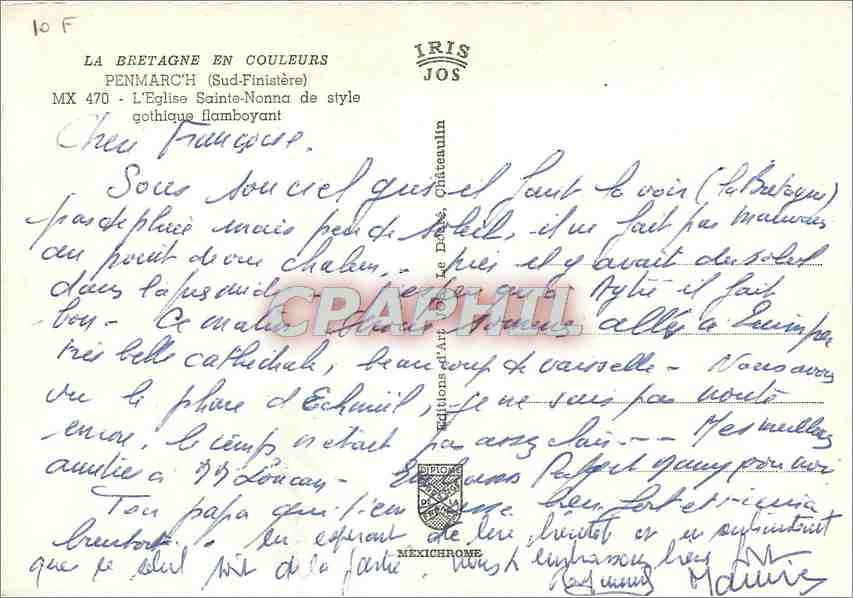 10 F
IRIS
JOS
LA BRETAGNE EN COULEURS
PENMARC'H (Sud-Finistère)
MX 470 - L'Eglise Sainte-Nonna de style
gothique flamboyant
Editions d'Art JOS Le Doaré, Châteaulin
CPARPHIL
Chère Françoise.
Sous son ciel gris il faut la voir (la Bretagne)
pas de pluie mais peu de soleil, il ne fait pas mauvais
au point de vue chaleur. hier il y avait du soleil
dans l'après midi - j'espère qu'à Aytré il fait
bon - Ce matin nous sommes allés à Quimper
très belle cathédrale, beaucoup de vaisselle - Nous avons
vu le phare d'Eckmül, je ne suis pas monté
encore, le temps n'était pas assez clair - Mes meilleures
amitiés à - Embrasse Papy et Mamy pour moi
Ton papa qui t'embrasse bien fort et
bientôt. en espérant de lire bientôt et en souhaitant
que le soleil soit de la partie, nous t'embrassons bien fort
DIPLOME
MEXICHROME